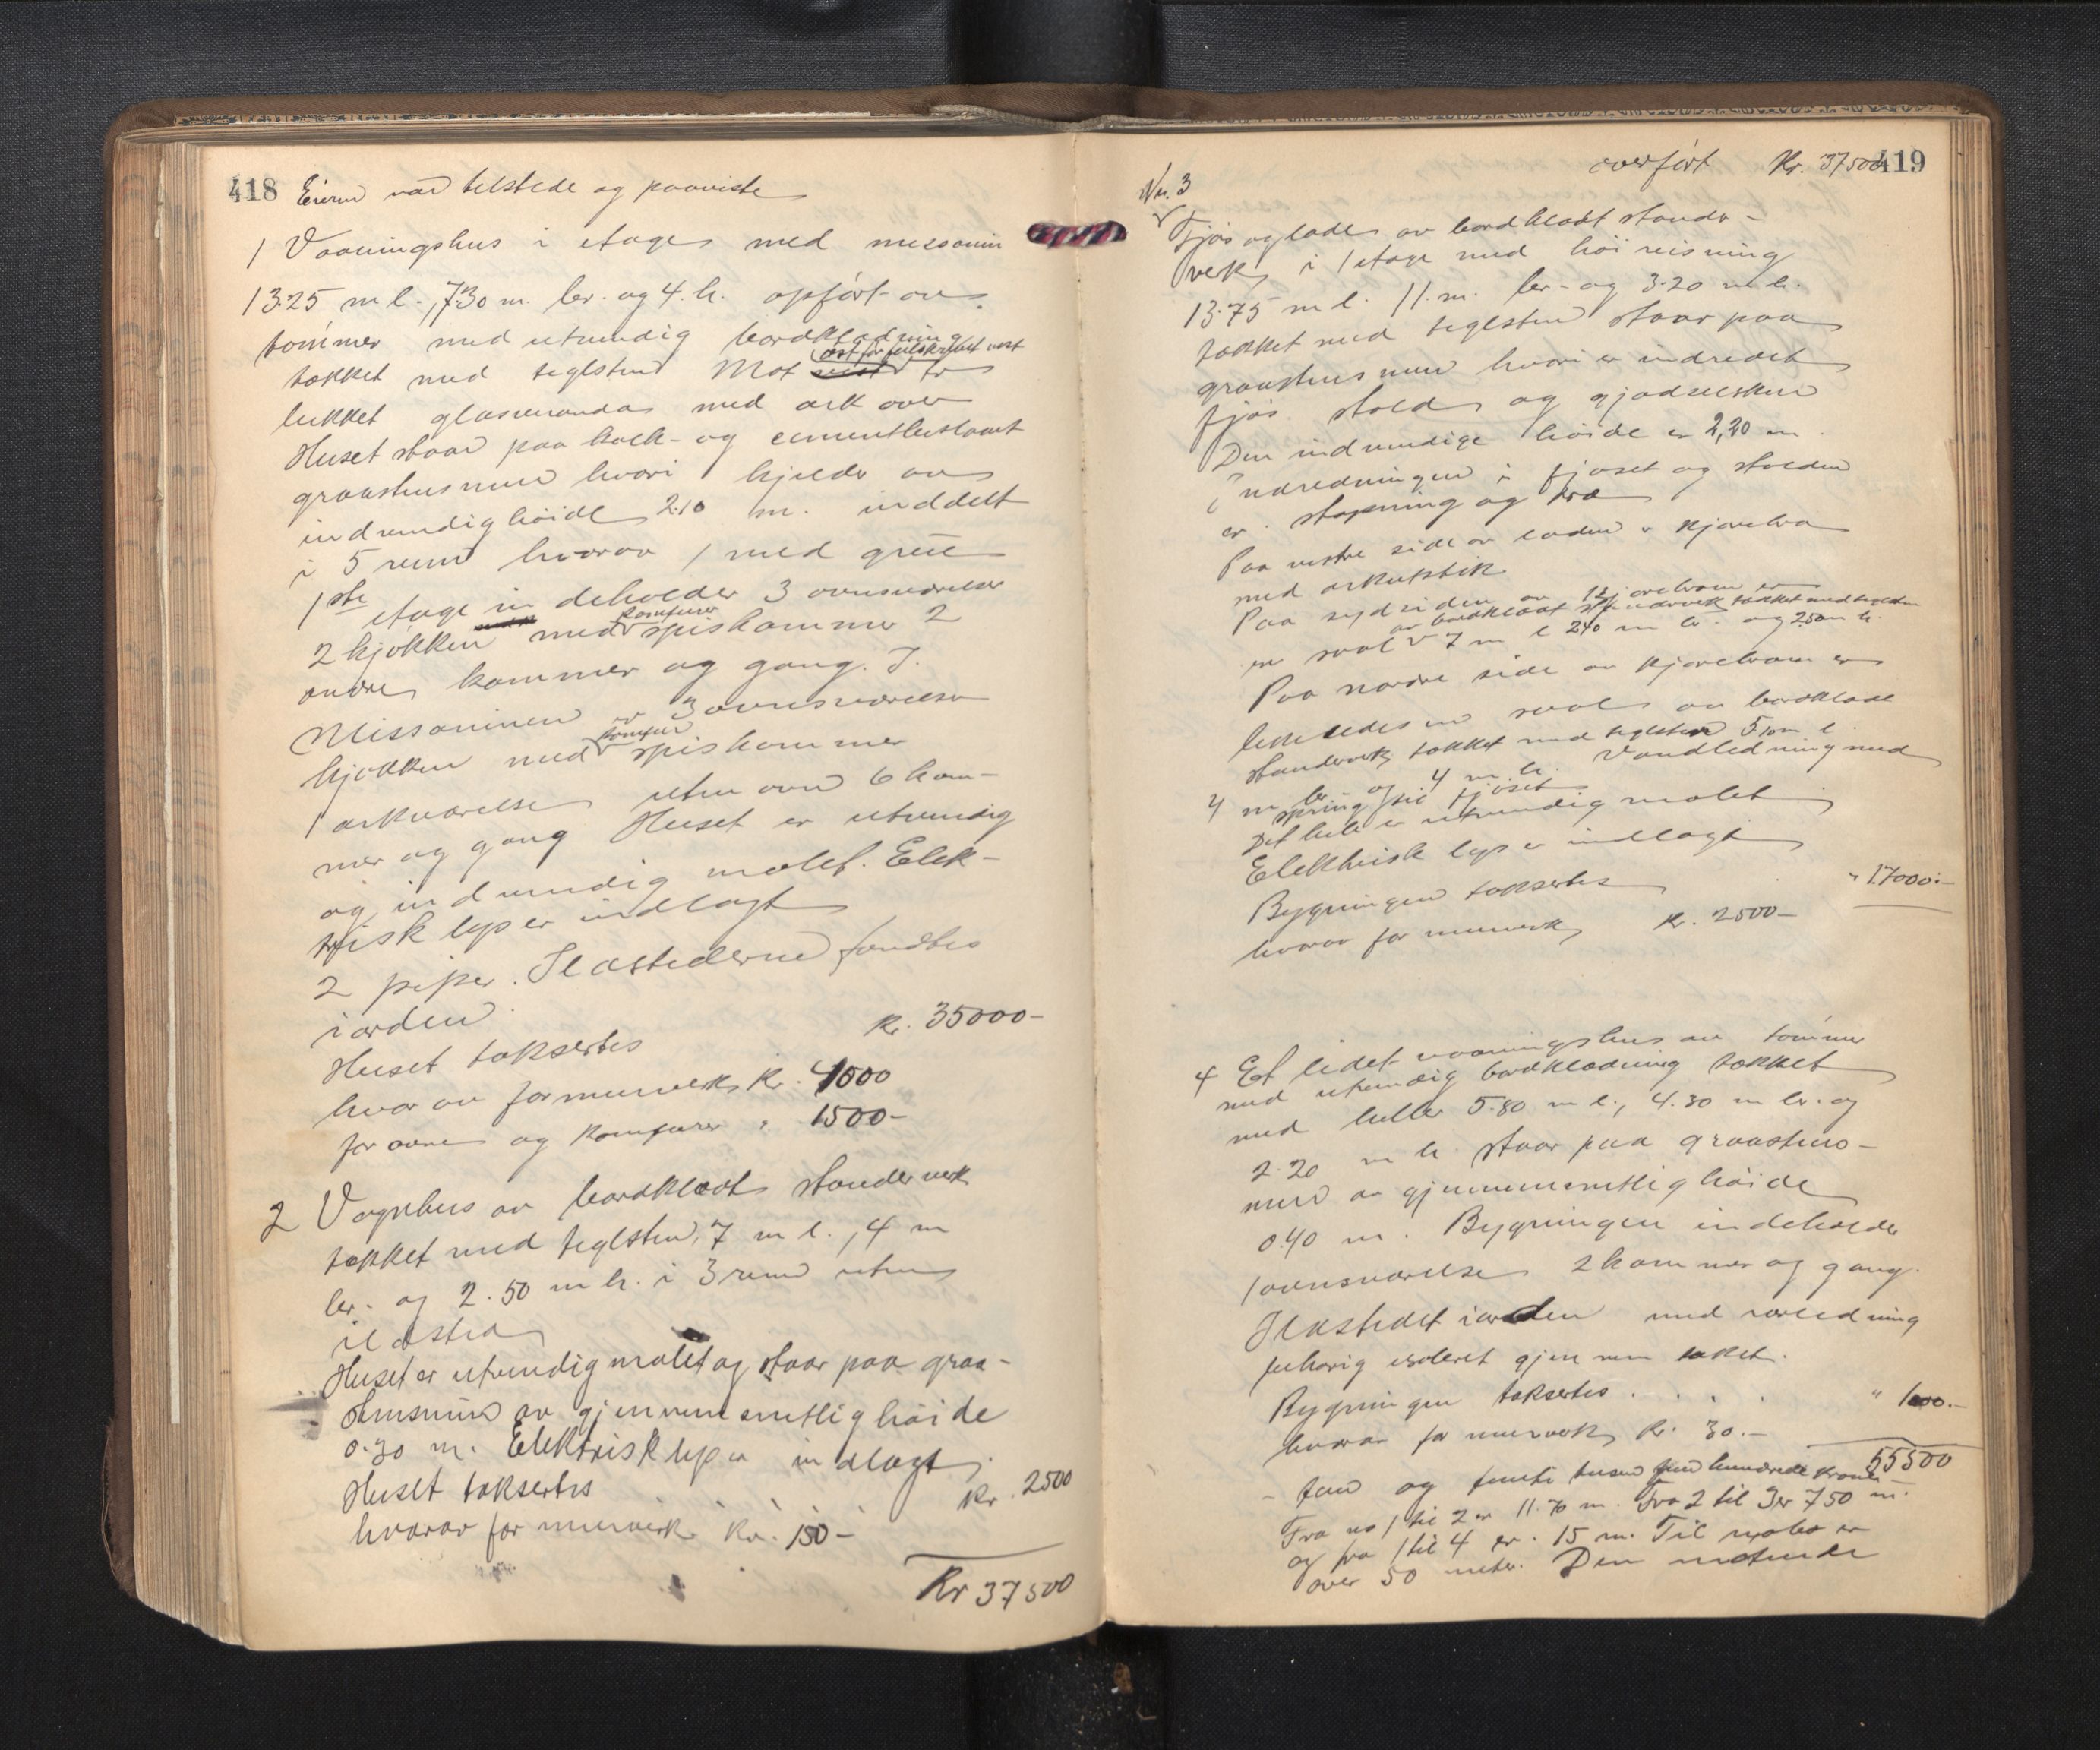 418
Eieren var tilstede og paaviste
1 Vaaningshus i etage med messanin
13.25 m l. 7.30 m. br. og 4. h. opført av
tømmer med utvendig bordklædning
øst før feilskrevet vest
tækket med teglsten Mot
lukket glasveranda med ark over
Huset staar paa kalk- og cementbestaaet
graastensmur hvori kjelder av
indvendig høide 2.10 m. inddelt
i 5 rum hvorav 1 med grue
1ste etage indeholder 3 ovnsværelser
komfurer
2 kjøkken med spiskammer 2
andre kammer og gang. I.
Messaninen er 3 ovnsværelser
komfur
kjøkken med spiskammer
1 arkværelse uten ovn 6 kam-
mer og gang Huset er utvendig
og indvendig malet. Elek-
trisk lys er indlagt
2 piper. Ildstederne fandtes
i orden
Huset taksertes Kr. 35000-
hvorav for murverk Kr. 4000
for ovne og komfurer " 1500-
2 Vognhus av bordklædt stenderverk
tækket med teglsten, 7 m l., 4 m
br. og 2.50 m h. i 3 rum uten
ildsted
Huset er utvendig malet og staar paa graa-
stensmur av gjennemsnitlig høide
0.30 m. Elektrisk lys er indlagt
Huset taksertes Kr. 2500
hvorav for murverk Kr. 150-
Kr 37500
419
overført Kr. 37500
No. 3
Fjøs og lade av bordklædt stender-
verk i 1 etage med høi reisning
13.75 m l. 11. m. br. og 3.20 m h.
tækket med teglsten staar paa
graastensmur hvori er indredet
fjøs stald og gjødselskur
Den indvendige høide er 2,20 m.
Indredningen i fjøset og stalden
er støpning og træ
Paa vestre side av laden er kjørebro
med arkutstik
Paa sydsiden av kjørebroen er
av bordklædt stenderverk tækket med teglsten
en sval 7 m l 2.40 m br. og 2.50 m h.
Paa nordre side av kjørebroen er
likeledes en sval av bordklædt
stenderverk tækket med teglsten 5 m l
4 m br og 4 m. h. Vandledning med
spring til fjøset
Det hele er utvendig malet
Elektrisk lys er indlagt
Bygningen taksertes " 17000.-
hvorav for murverk Kr. 2500-
4 Et lidet vaaningshus av tømmer
med utvendig bordklædning tækket
med heller 5.80 m l., 4.30 m br. og
2.20 m h staar paa graastens-
mur av gjennemsnitlig høide
0.40 m. Bygningen indeholder
1 ovnsværelse 2 kammer og gang.
Ildstedet i orden med rørledning
behørig isoleret gjennem taket.
Bygningen taksertes . . . . " 1000.-
hvorav for murverk Kr. 30.-
55500
- fem og femti tusen fem hundrede kroner-
Fra no 1 til 2 er 11.70 m. Fra 2 til 3 er 7.50 m.
og fra 1 til 4 er 15 m. Til nabo er
over 50 meter. Den møtende